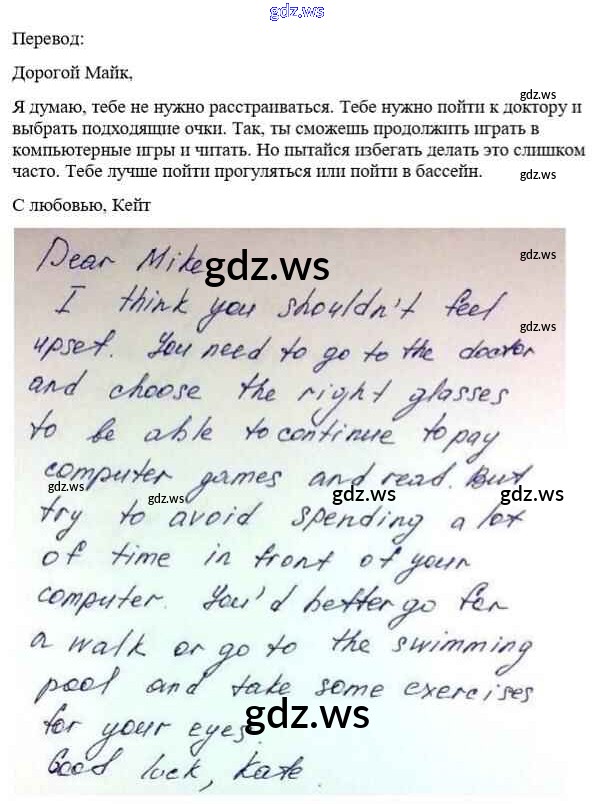 gdz.ws
Перевод:
Дорогой Майк,
gdz.ws
Я думаю, тебе не нужно расстраиваться. Тебе нужно пойти к доктору и
выбрать подходящие очки. Так, ты сможешь продолжить играть в
компьютерные игры и читать. Но пытайся избегать делать это слишком
часто. Тебе лучше пойти прогуляться или пойти в бассейн.
gdz.ws
С любовью, Кейт
Dear Mike
gdz.ws
gdz.ws
I think you shouldn't feel
gdz.ws
upset. You need to go to the doctor
and choose the right glasses
to be able to continue to pay
computer games and read. But
gdz.ws
gdz.ws
gdz.ws
try to avoid spending a lot
of time in front of your
computer. You'd better go for
a walk or go to the swimming
pool and take some exercises
for your eyes.
gdz.ws
gdz.ws
Good luck, Kate